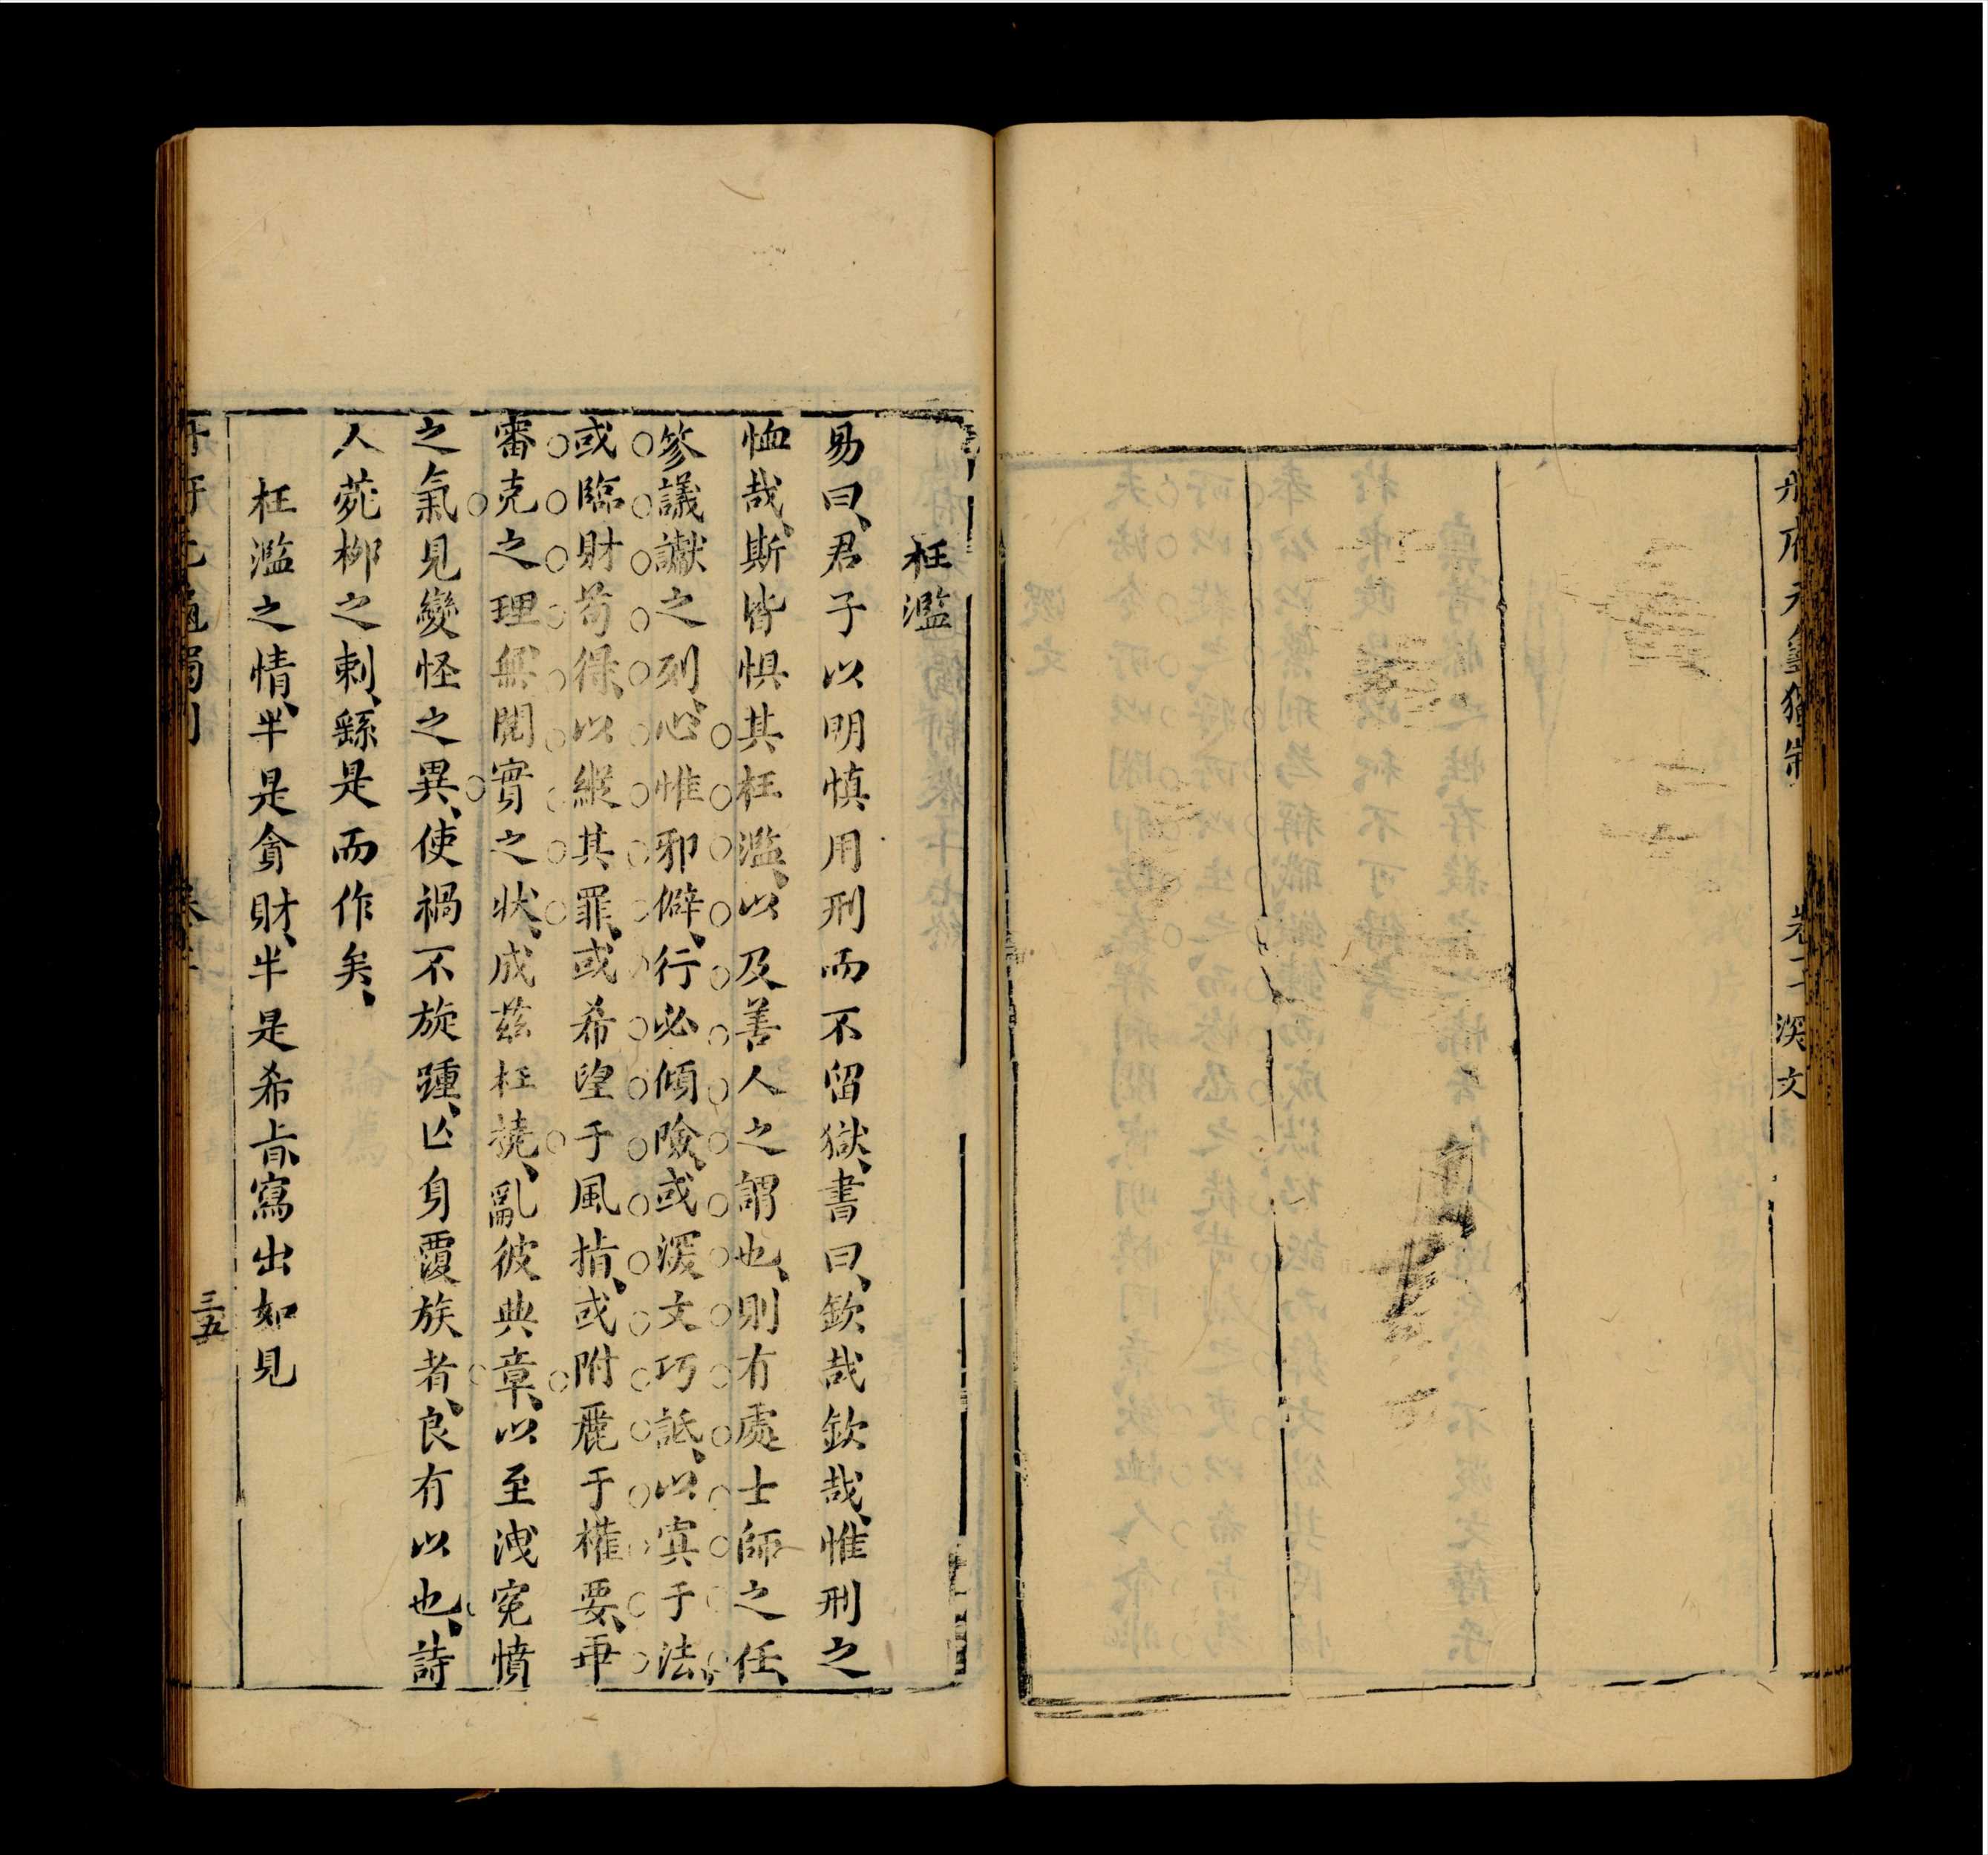 册府元龜獨制 卷十 深文
枉濫
易曰、君子以明慎用刑而不留獄、書曰、欽哉欽哉、惟刑之
恤哉、斯皆惧其枉濫、以及善人之謂也、則有處士師之任、
參議讞之列、心惟邪僻、行必傾險、或深文巧詆、以寘于法、
或臨財苟得、以縱其罪、或希望于風指、或附麗于權要、再
審克之理無聞、閱實之狀、成茲枉撓、亂彼典章、以至洩寃憤
之氣、見變怪之異、使禍不旋踵、亾身覆族者、良有以也、詩
人菀柳之刺、繇是而作矣、
枉濫之情、半是貪財、半是希旨、寫出如見
三五